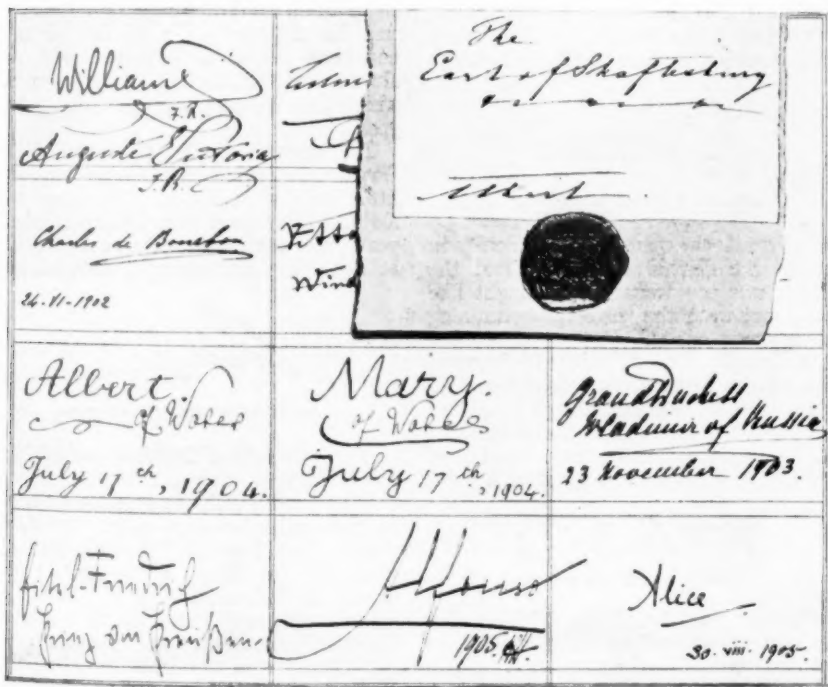 William
I.R.
Auguste Victoria
I.R.
Charles de Bourbon
24-VI-1902
Vitto
Wind
The
Earl of Shaftesbury
Albert
Albert
of Wales
July 17th, 1904.
Mary.
of Wales
July 17th, 1904.
Grand Duchess
Wladimir of Russia
23 November 1903.
Eitel-Friedrich
Prinz von Preußen.
Alfonso
1905.
Alice
30-viii-1905-